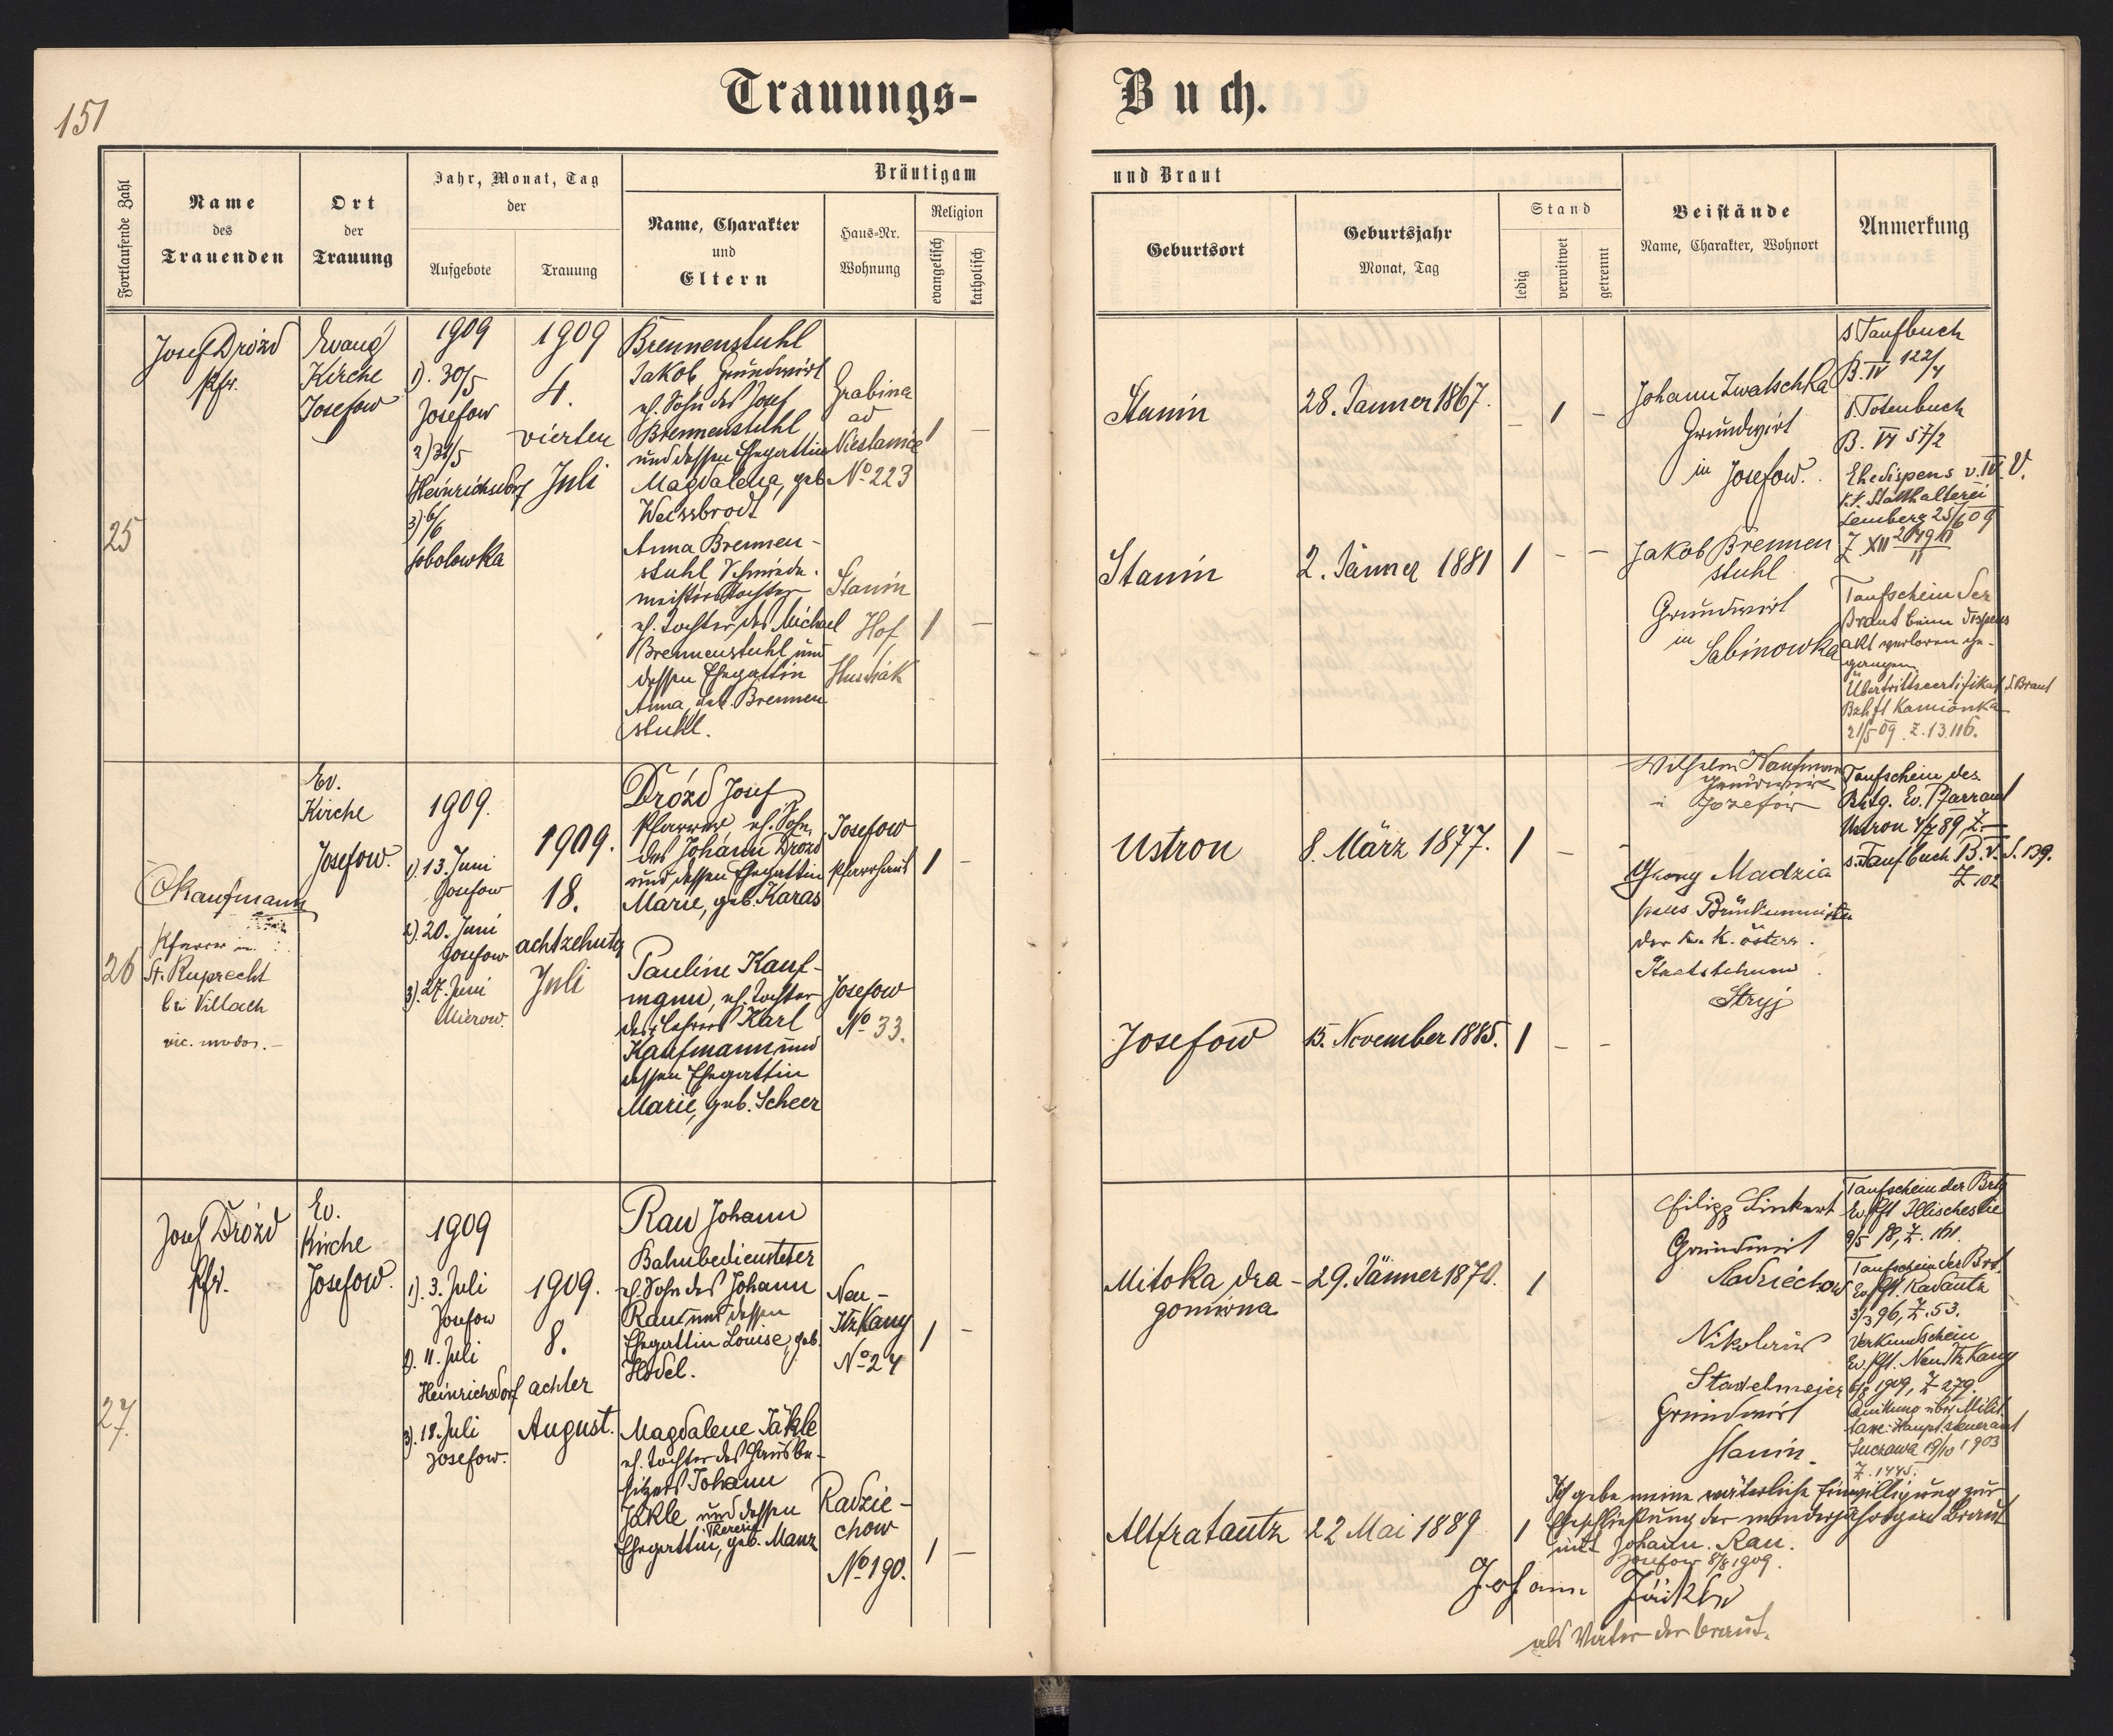 151
Trauungs-
Buch.
Fortlaufende Zahl
Name
des
Trauenden
Ort
der
Trauung
Jahr, Monat, Tag
der
Aufgebote
Trauung
Bräutigam
Name, Charakter
und
Eltern
Haus-Nr.
Wohnung
Religion
evangelisch
katholisch
und Braut
Geburtsort
Geburtsjahr
Monat, Tag
Stand
ledig
verwitwet
getrennt
Beistände
Name, Charakter, Wohnort
Anmerkung
25
Josef Drózd
Pfr.
Evang
Kirche
Josefow
1909
1). 30/5
Josefow
2) 31/5
Heinrichsdorf
3) 6/6
Sobolowka
1909
4.
vierten
Juli
Brennenstuhl
Jakob Grundwirt
eh. Sohn des Josef
Brennenstuhl
und dessen Ehegattin
Magdalena, geb
Weissbrodt
Grabina
ad
Niestanice
No 223
1 -
Anna Brennen-
stuhl, Schmiede-
meisters Tochter
eh. Tochter des Michael
Brennenstuhl und
dessen Ehegattin
Anna, geb. Brennen
stuhl.
Stanin
Hof
Husiak
1 -
Stanin
28. Janner 1867.
- 1 -
Stanin
2. Jänner 1881
1 - -
Johann Zwatschka
Grundwirt
in Josefow.
Jakob Brennen
stuhl
Grundwirt
in
Sabinowka
s. Taufbuch
B. IV 122/4
s. Totenbuch
B. VI 57/2
Ehedispens v. IV. V.
k.k. Statthalterei
Lemberg 25/6 09
Z XII
Taufschein der
Braut beim Dispens
akt verloren ge-
gangen
Übertrittscertifikat d. Braut
Bzhft Kamionka
21/5 09. Z. 13.116.
26
Kaufmann
Pfarrer in
St. Ruprecht
bei Villach
Ev.
Kirche
Josefow.
1909.
1). 13. Juni
Josefow
2). 20. Juni
Josefow
3). 27. Juni
Mierow.
1909.
18.
achtzehnten
Juli
Drózd Josef
Pfarrer, eh. Sohn
des Johann Drózd
und dessen Ehegattin
Marie, geb. Karas
Josefow
Pfarrhaus
1 -
Pauline Kauf-
mann, eh. Tochter
des Lehrers Karl
Kaufmann und
dessen Ehegattin
Marie, geb. Scheer
Josefow
No 33.
Ustron
8. März 1877.
1 - -
Josefow
15. November 1885.
1 - -
Wilhelm Kaufmann
Grundwirt
i Jozefów
Georg Madzia
Brückenmeister
der k. k. österr.
Staatsbahnen
Stryj
Taufschein des
Brtg. Ev. Pfarramt
Ustron 4/7 89, Z. —
s. Taufbuch B. V. S. 139.
Z 102
27.
Josef Drózd
Pfr.
Ev.
Kirche
Josefow.
1909
1). 3. Juli
Josefow
2). 11. Juli
Heinrichsdorf
3). 18. Juli
Josefow.
1909.
8.
achter
August.
Rau Johann
Bahnbediensteter
eh. Sohn des Johann
Rau und dessen
Ehegattin Louise, geb.
Hodel.
Neu-
Itzkany
No 24
1 -
Magdalene Jäkle
eh. Tochter des Hausbe-
sitzers Johann
Jäkle und dessen
Theresie
Ehegattin, geb. Manz
Radzie-
chow
No 190.
1 -
Mitoka, dra-
gomirna
29. Jänner 1870.
1
Altfratautz
22 Mai 1889
1
Filipp Linkert
Grundwirt
Radziechow
Nikolaus
Stadelmeier
Grundwirt
Stanin.
Taufschein der Brtg
Ev. Pft. Illischestie
9/5 18, Z. 161.
Taufschein der Brt.
Ev. Pft. Radautz
3/3 96, Z. 53.
Verkundschein
Ev. Pft. Neu Itzkany
6/8 1909, Z 279.
Quittung über Milit
taxe: Hauptsteueramt
Suczawa 19/10 1903
Z. 1445.
Ich gebe meine väterliche Einwilligung zur
Eheschließung der minderjährigen Braut
mit Johann Rau.
Josefow 8/8 1909.
Johann Jäikle
als Vater der braut.